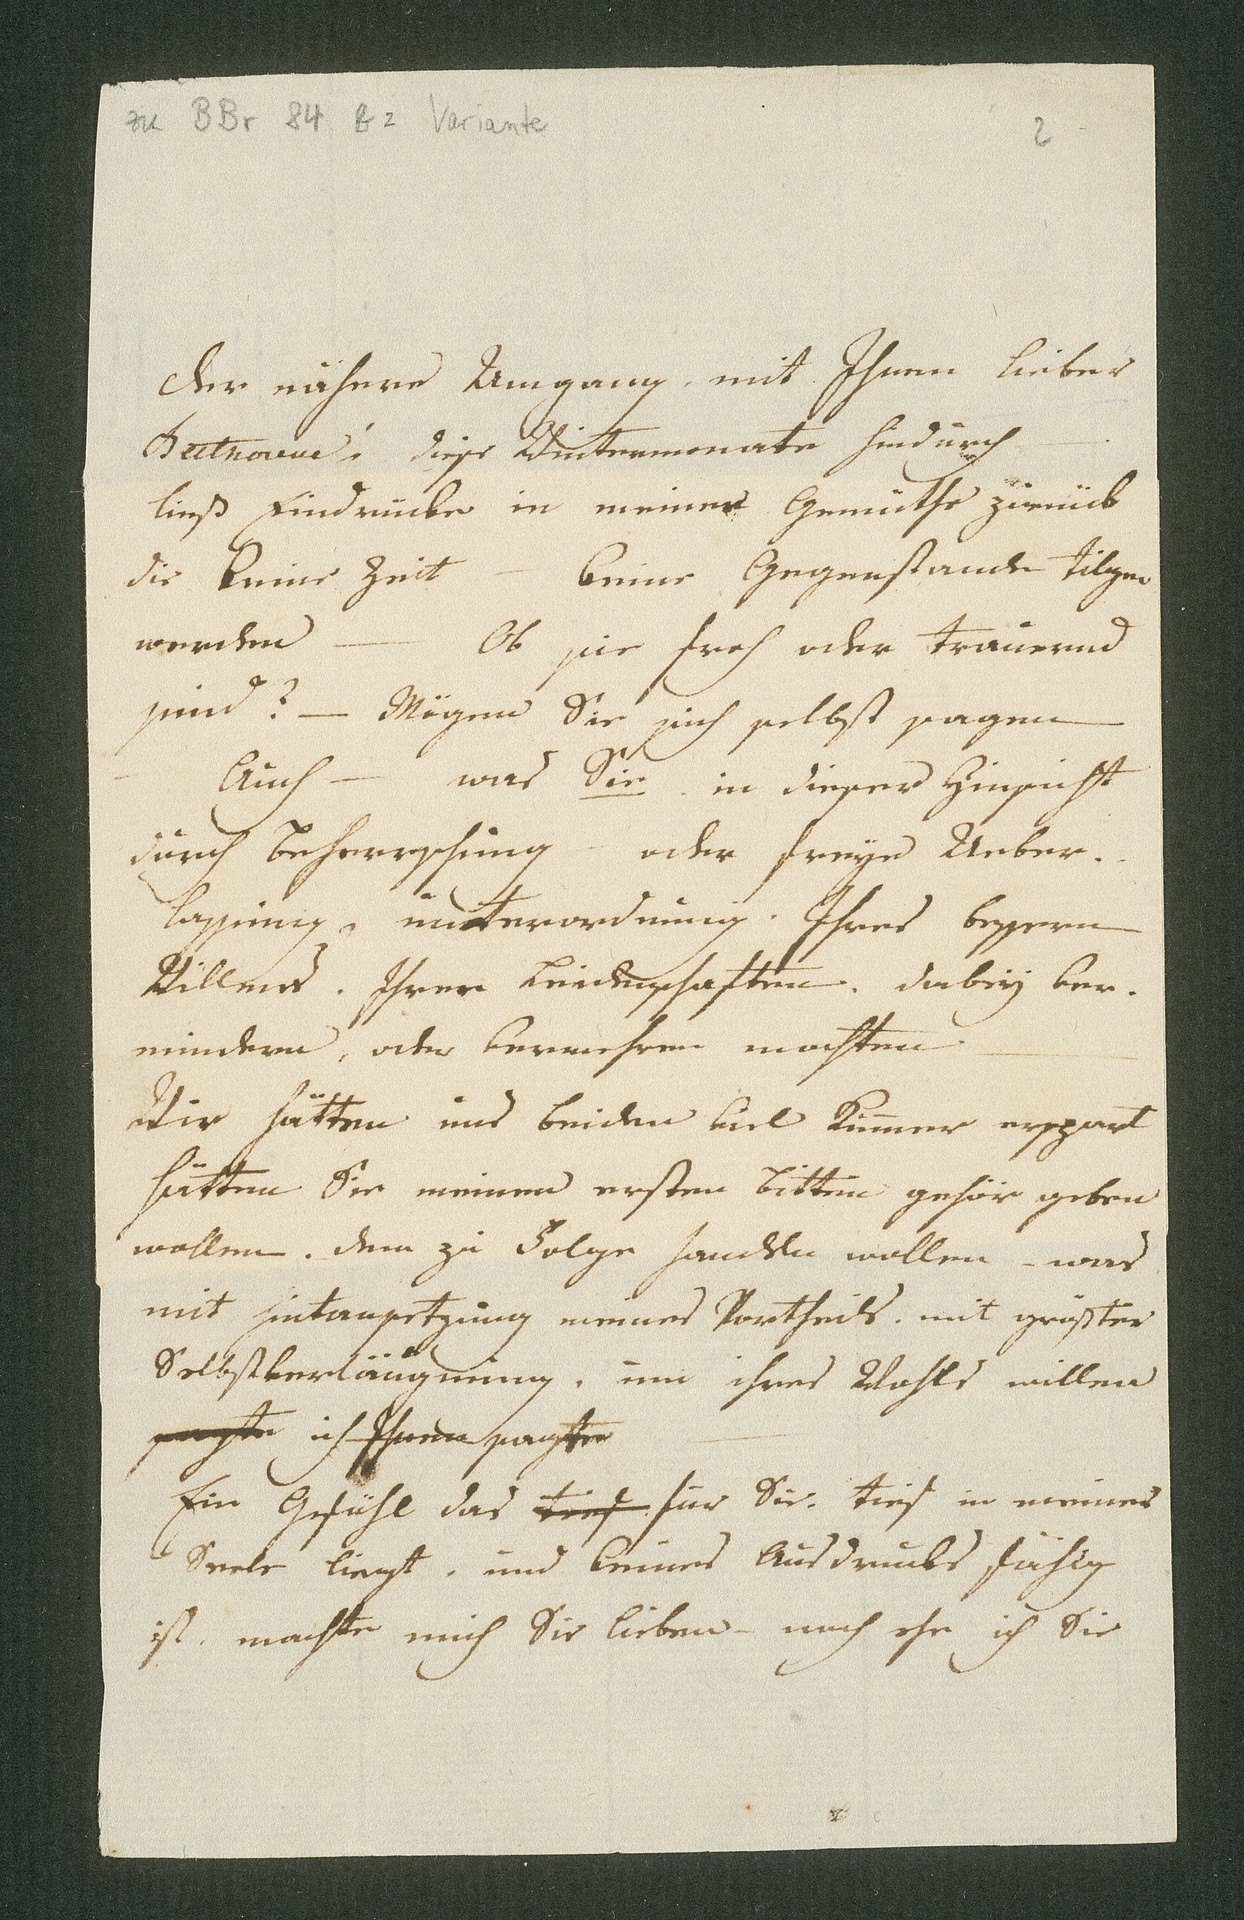 zu BBr 84 Variante
2
der nähere Umgang, mit Ihnen lieber
Beethoven! diese Wintermonate hindurch —
ließ Eindrücke in meinem Gemüthe zurück
die keine Zeit — keine Gegenstände tilgen
werden — Ob sie froh oder traurend
sind? — Mögen Sie sich selbst sagen —
— Auch — was Sie. in dieser Hinsicht
durch Beherrschung – oder freye Ueber.
lassung, unterordnung. Ihres bessern
Willens. Ihrer Leidenschaften. dabey ver.
mindern, oder vermehren mochten —
Wir hätten uns beiden viel Kummer erspart
hätten Sie meinen ersten Bitten gehör geben
wollen. dem zu Folge handeln wollen – was
mit hintansetzung meines Vortheils. mit größter
Selbstverläugnung. um ihres Wohls willen
sagte ich Ihnen sagte —
Ein Gefühl das tief für Sie. tief in meiner
Seele liegt. und keines Ausdrucks fähig
ist. machte mich Sie lieben – noch ehe ich Sie